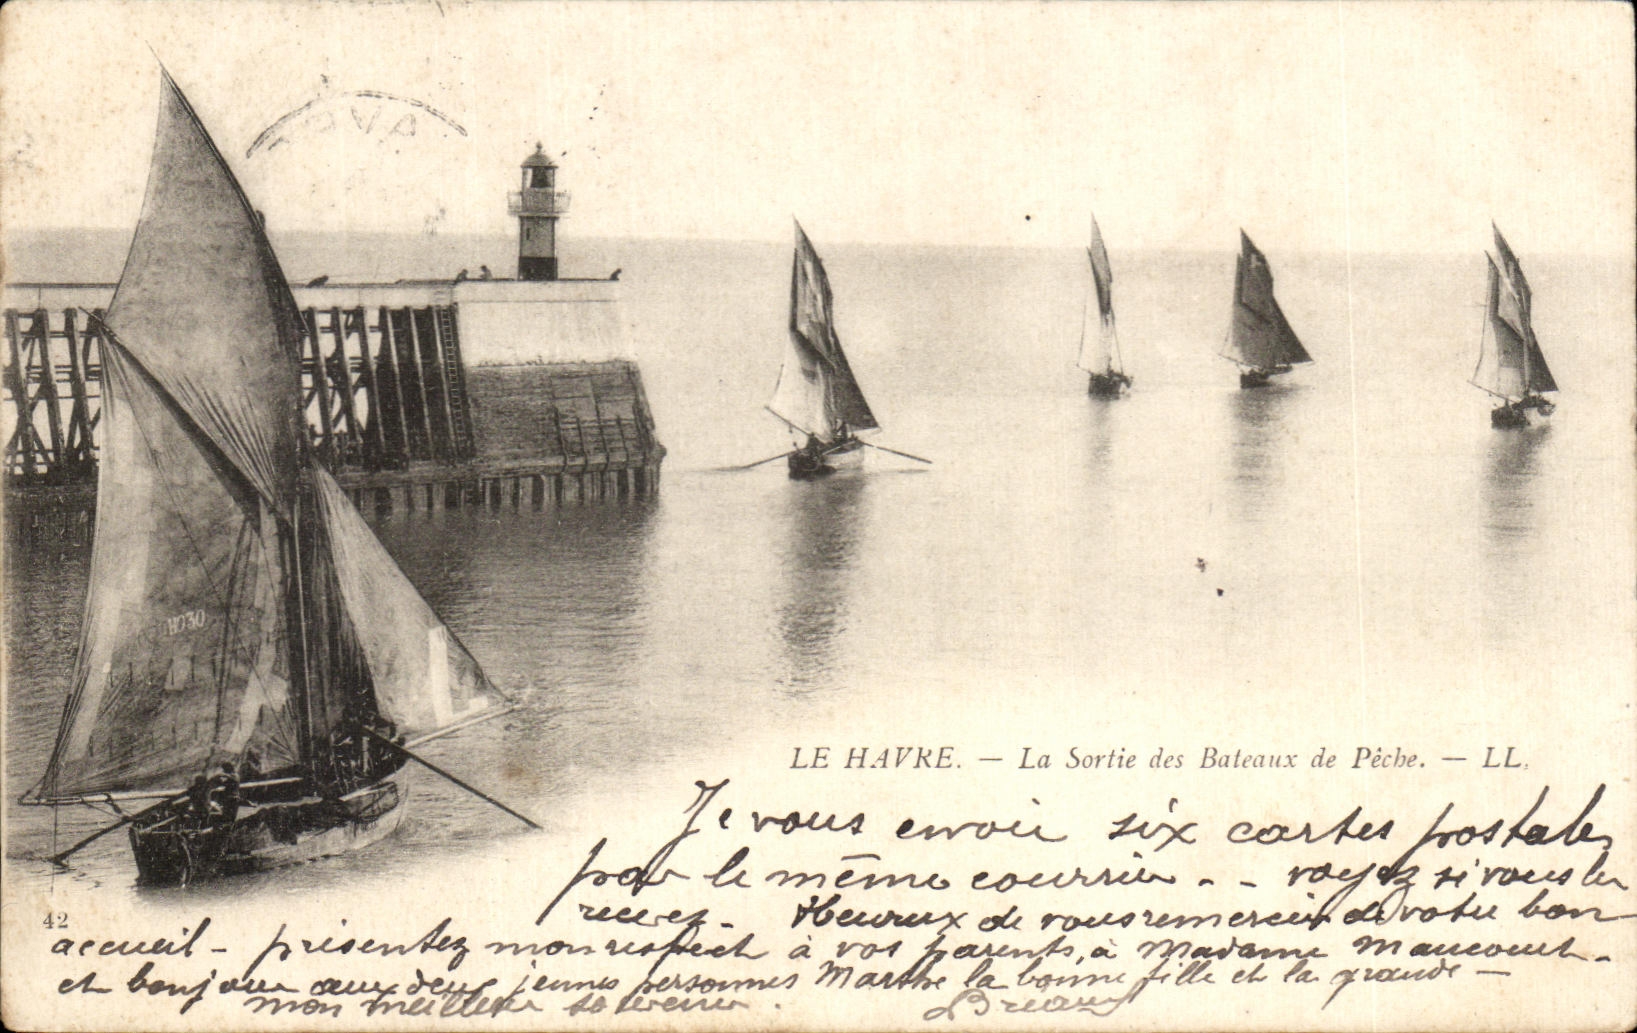 HO30
LE HAVRE. — La Sortie des Bateaux de Pêche. — LL.
Je vous envoie six cartes postales
par le même courrier - - voyez si vous les
recevez - Heureux de vous remercier de votre bon
42
accueil - présentez mon respect à vos parents, à Madame Maucourt -
et bonjour aux deux jeunes personnes Marthe la bonne fille et la grande -
mon meilleur souvenir.